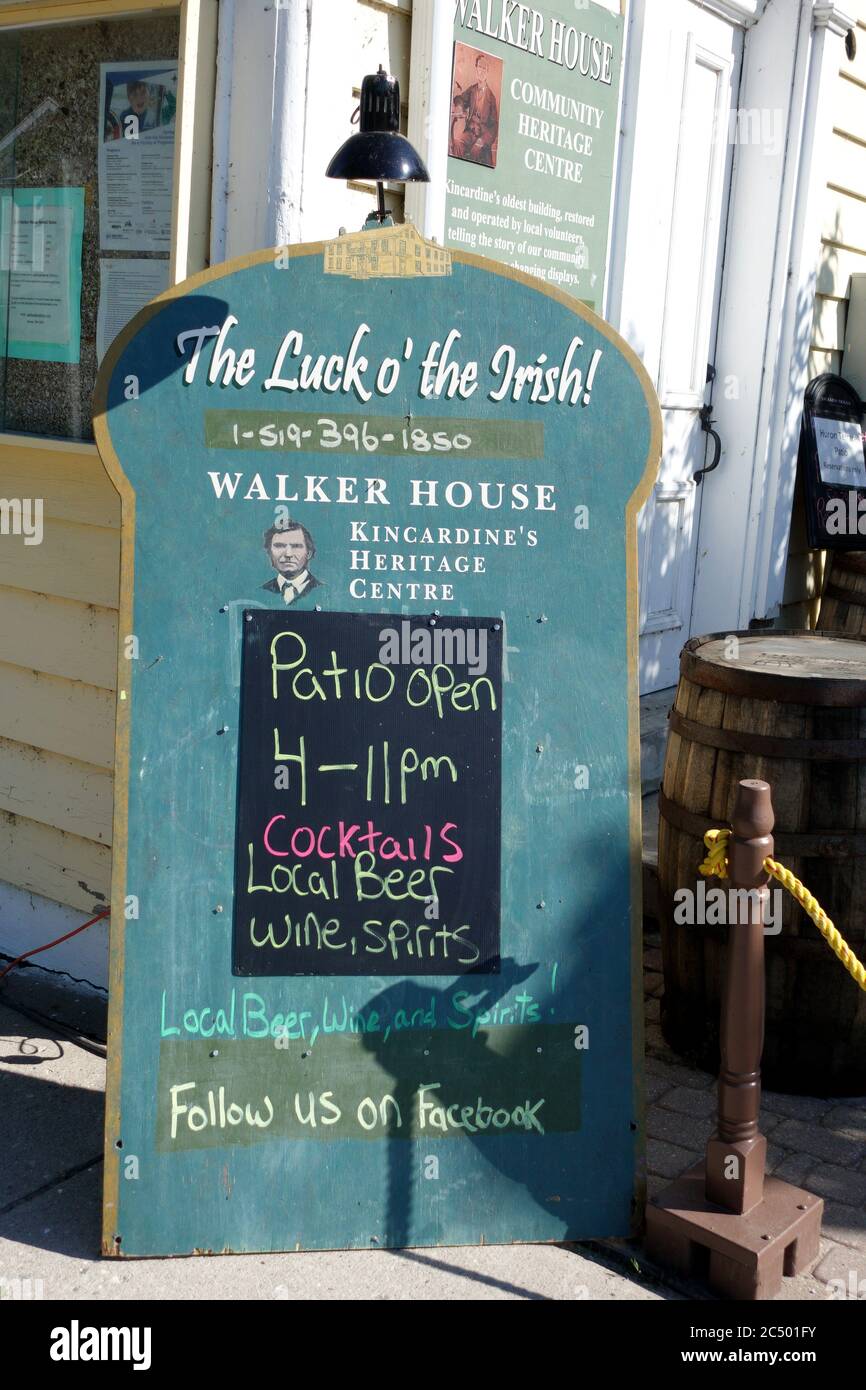 WALKER HOUSE
COMMUNITY
HERITAGE
CENTRE
Kincardine's oldest building, restored
and operated by local volunteers,
telling the story of our community
changing displays.
The Luck o' the Irish!
1-519-396-1850
WALKER HOUSE
KINCARDINE'S
HERITAGE
CENTRE
Patio open
4-11pm
Cocktails
Local Beer
wine, spirits
Local Beer, Wine, and Spirits!
Follow us on Facebook
Huron
Patio
alamy
Image ID: 2C501FY
www.alamy.com